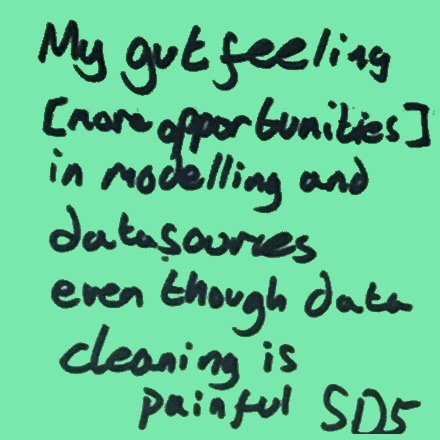 My gut feeling
[more opportunities]
in modelling and
datasources
even though data
cleaning is
painful SD5